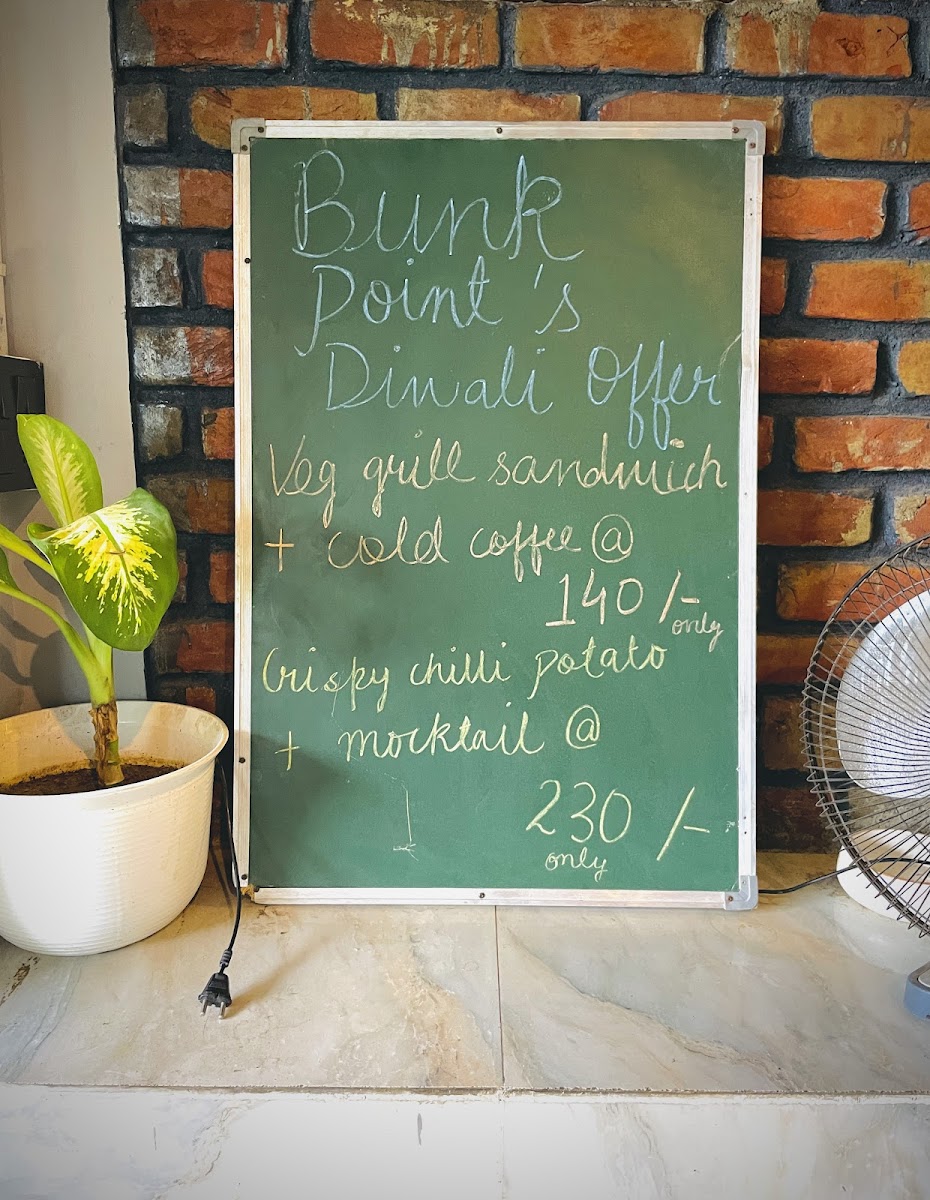 Bunk
Point's
Diwali Offer
Veg grill sandwich
+ cold coffee @
140/-
only
Crispy chilli potato
+ mocktail @
230 /-
only